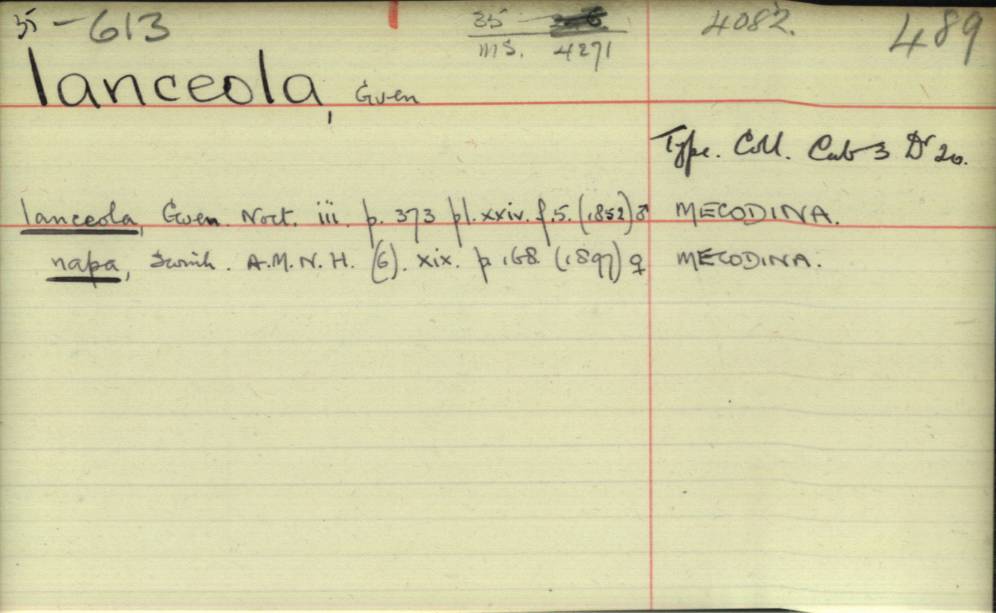 35 -613 35 4082. 489
MS. 4271
lanceola, Guen
Type. Coll. Cab 3 Dr 20.
lanceola, Guen. Noct. iii p. 373 pl. xxiv. f. 5. (1852) ♂ MECODINA.
napa, Swinh. A.M.N.H. (6). xix. p 168 (1897) ♀ MECODINA.